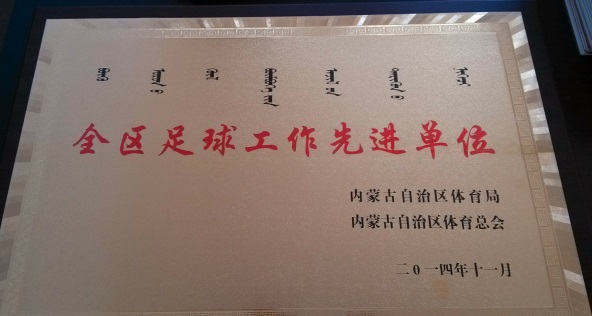 全区足球工作先进单位
内蒙古自治区体育局
内蒙古自治区体育总会
二0一四年十一月